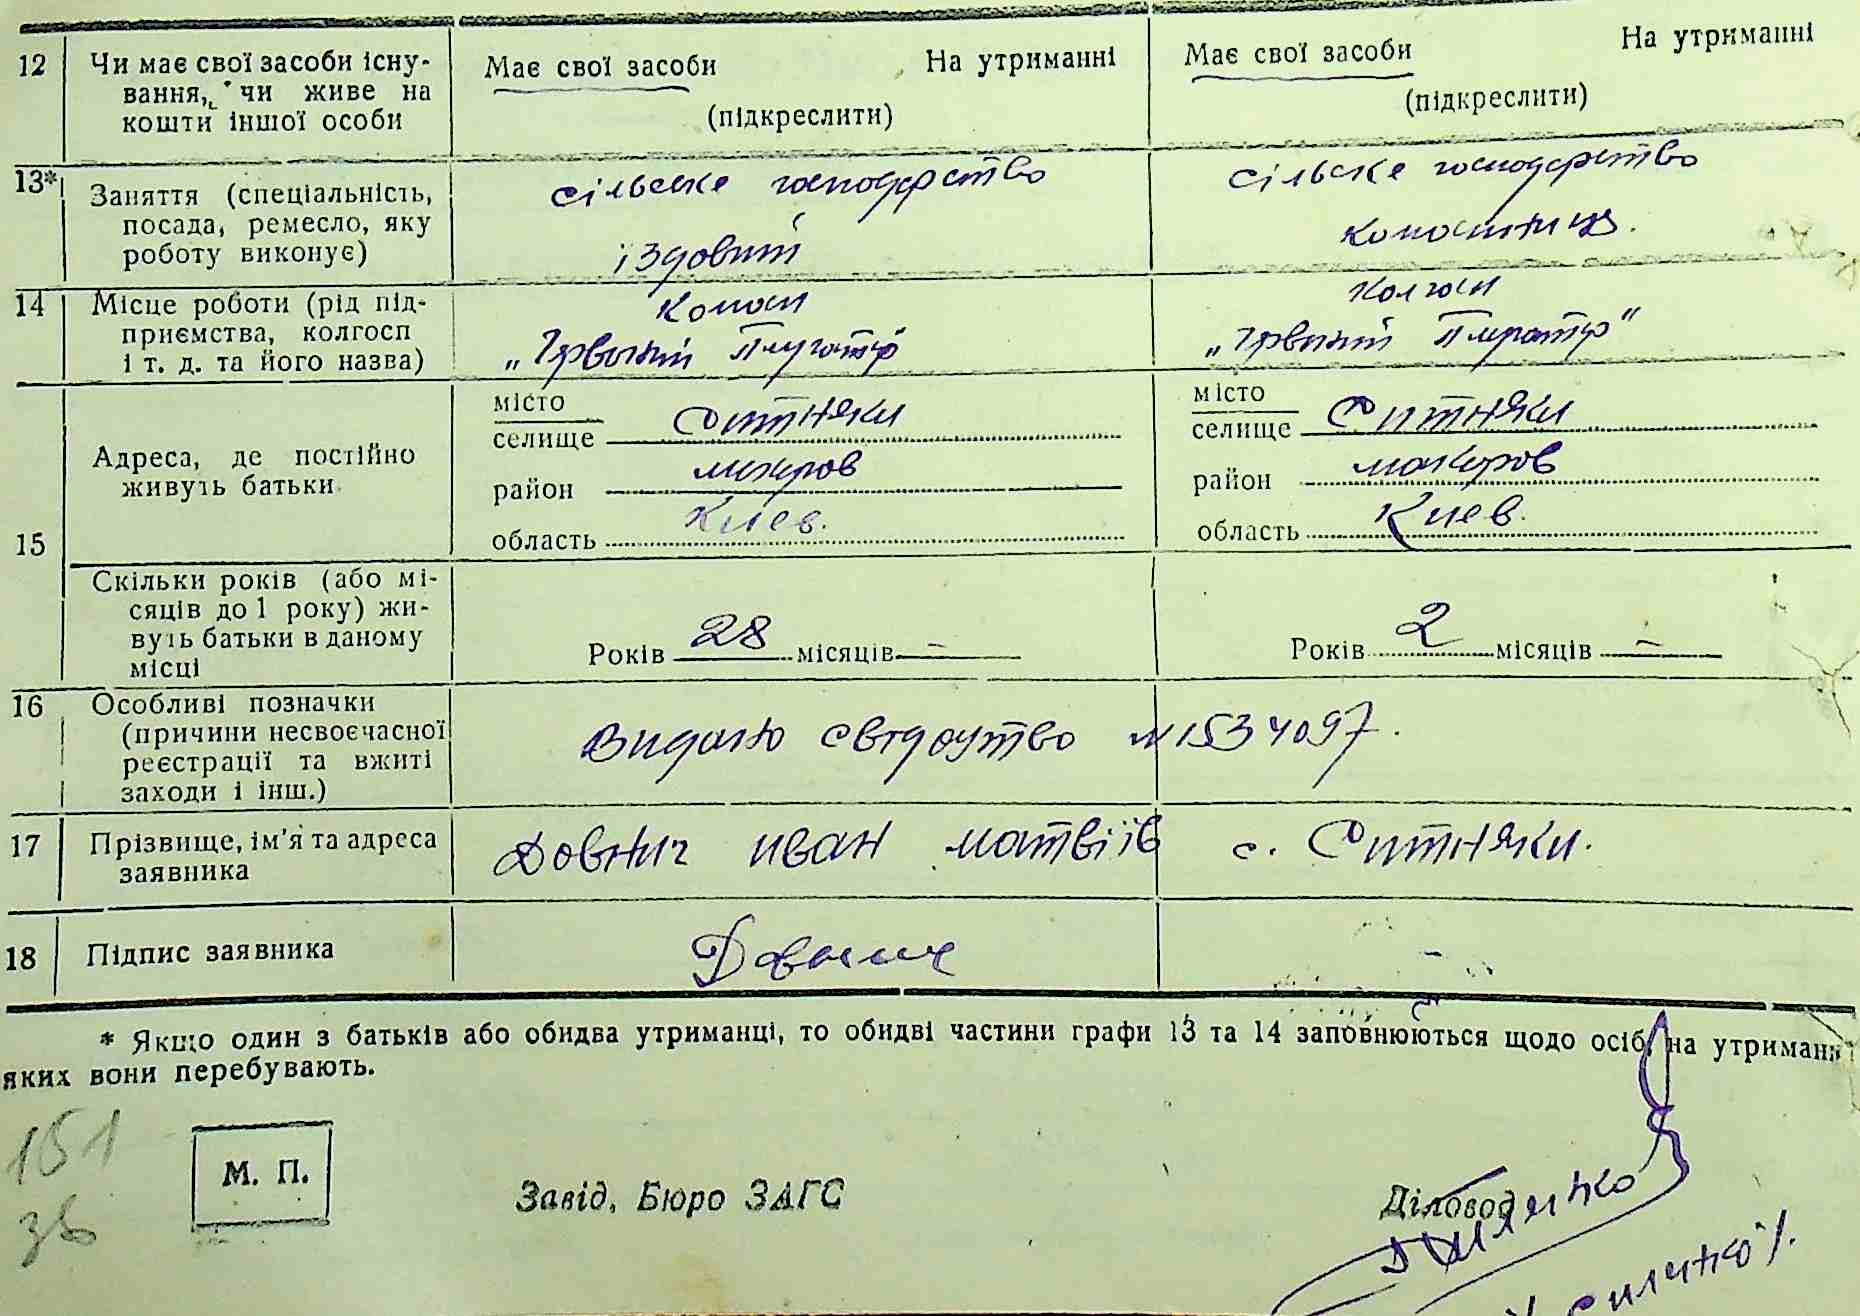 12 Чи має свої засоби існу-
вання, чи живе на
кошти іншої особи
Має свої засоби На утриманні
(підкреслити)
Має свої засоби На утриманні
(підкреслити)
13* Заняття (спеціальність,
посада, ремесло, яку
роботу виконує)
сільське господарство
їздовий
сільське господарство
14 Місце роботи (рід під-
приємства, колгосп
і т. д. та його назва)
„Червоний
Колгосп
„Червоний
15 Адреса, де постійно
живуть батьки
місто
селище Ситняки
район макаров
область Киев.
місто
селище Ситняки
район макаров
область Киев.
Скільки років (або мі-
сяців до 1 року) жи-
вуть батьки в даному
місці
Років 28 місяців –
Років 2 місяців –
16 Особливі позначки
(причини несвоєчасної
реєстрації та вжиті
заходи і інш.)
Видано свідоцтво №1534097.
17 Прізвище, ім'я та адреса
заявника
Довнич иван матвіїв с. Ситняки.
18 Підпис заявника
* Якщо один з батьків або обидва утриманці, то обидві частини графи 13 та 14 заповнюються щодо осіб, на утриманні
яких вони перебувають.
151
М. П.
Завід, Бюро ЗАГС
Діловод